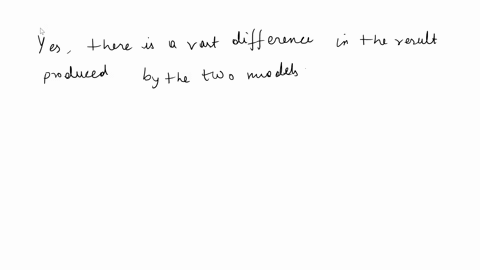 Yes, there is a vast difference in the result
produced by the two models